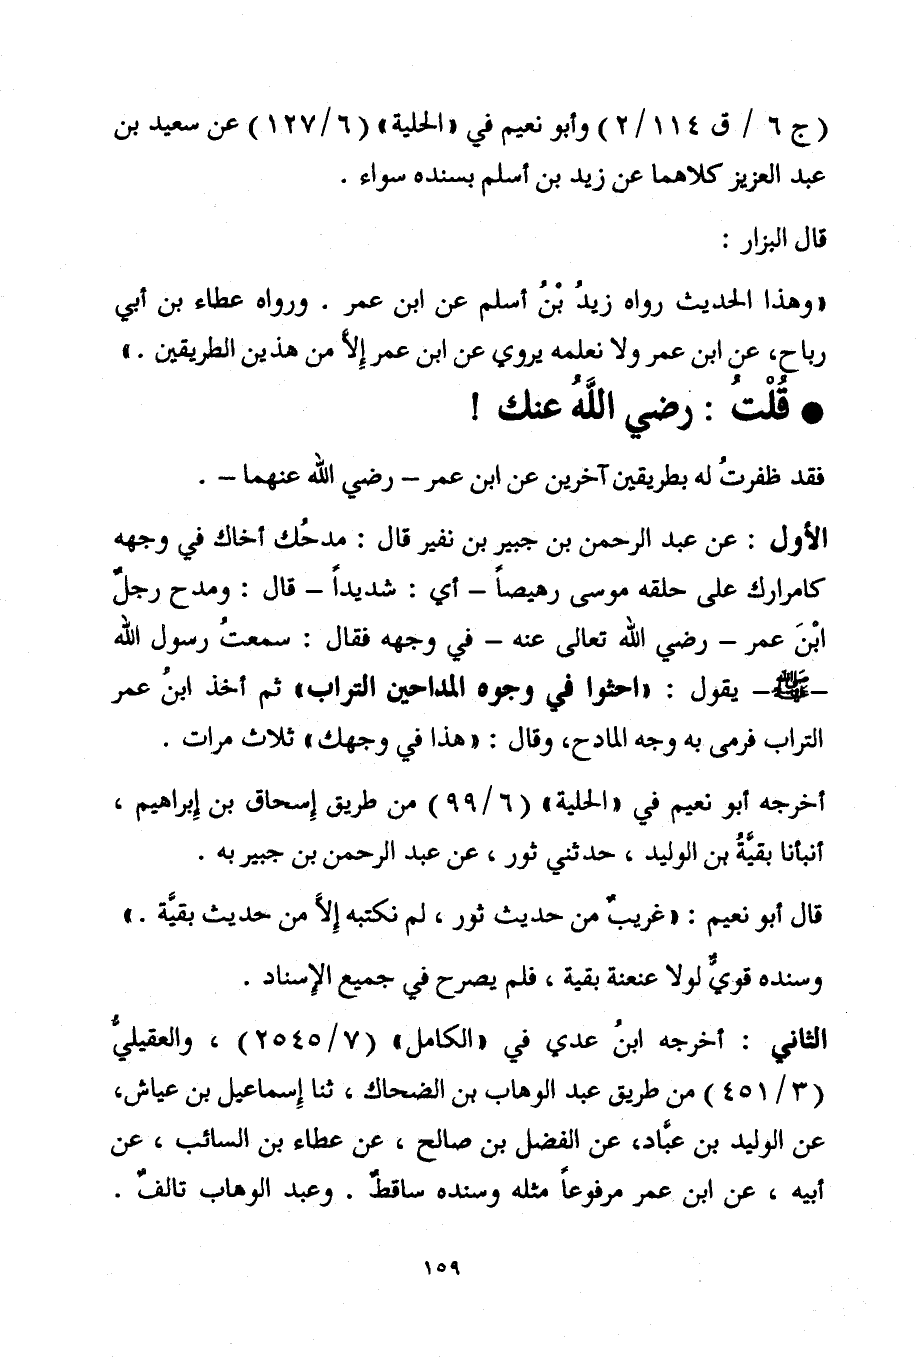 ( ج ٦ / ق ١١٤ /٢ ) وأبو نعيم في «الحلية» ( ٦ /١٢٧ ) عن سعيد بن
عبد العزيز كلاهما عن زيد بن أسلم بسنده سواء .
قال البزار :
«وهذا الحديث رواه زيدُ بْنُ أسلم عن ابن عمر . ورواه عطاء بن أبي
رباح، عن ابن عمر ولا نعلمه يروي عن ابن عمر إلاَّ من هذين الطريقين . »
● قُلْتُ : رضي اللَّهُ عنك !
فقد ظفرتُ له بطريقين آخرين عن ابن عمر – رضي الله عنهما – .
الأول : عن عبد الرحمن بن جبير بن نفير قال : مدحُك أخاك في وجهه
كامرارك على حلقه موسى رهيصاً – أي : شديداً – قال : ومدح رجلٌ
ابْنَ عمر – رضي الله تعالى عنه – في وجهه فقال : سمعتُ رسول الله
–ﷺ– يقول : «احثوا في وجوه المداحين التراب» ثم أخذ ابنُ عمر
التراب فرمى به وجه المادح، وقال : « هذا في وجهك» ثلاث مرات .
أخرجه أبو نعيم في «الحلية» ( ٦ /٩٩ ) من طريق إسحاق بن إبراهيم ،
أنبأنا بقيَّةُ بن الوليد ، حدثني ثور ، عن عبد الرحمن بن جبير به .
قال أبو نعيم : «غريبٌ من حديث ثور ، لم نكتبه إلاَّ من حديث بقيَّة . »
وسنده قويٌّ لولا عنعنة بقية ، فلم يصرح في جميع الإسناد .
الثاني : أخرجه ابنُ عدي في «الكامل» ( ٧ /٢٥٤٥ ) ، والعقيليُّ
( ٣ /٤٥١ ) من طريق عبد الوهاب بن الضحاك ، ثنا إسماعيل بن عياش،
عن الوليد بن عبَّاد، عن الفضل بن صالح ، عن عطاء بن السائب ، عن
أبيه ، عن ابن عمر مرفوعاً مثله وسنده ساقطٌ . وعبد الوهاب تالفٌ .
١٥٩